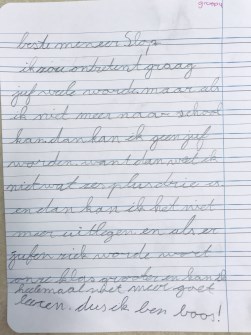 groen
beste meneer Slop
ik zou ontzetent graag
juf wile worde maar als
ik niet meer naar school
kan dan kan ik geen juf
worden want dan weet ik
niet wat zes plus drie is
en dan kan ik het niet
meer uitlegen en als er
jufen ziek worde wort
onze klas groter en kan ik
heelemaal niet meer goet
leeren. dus ik ben boos!